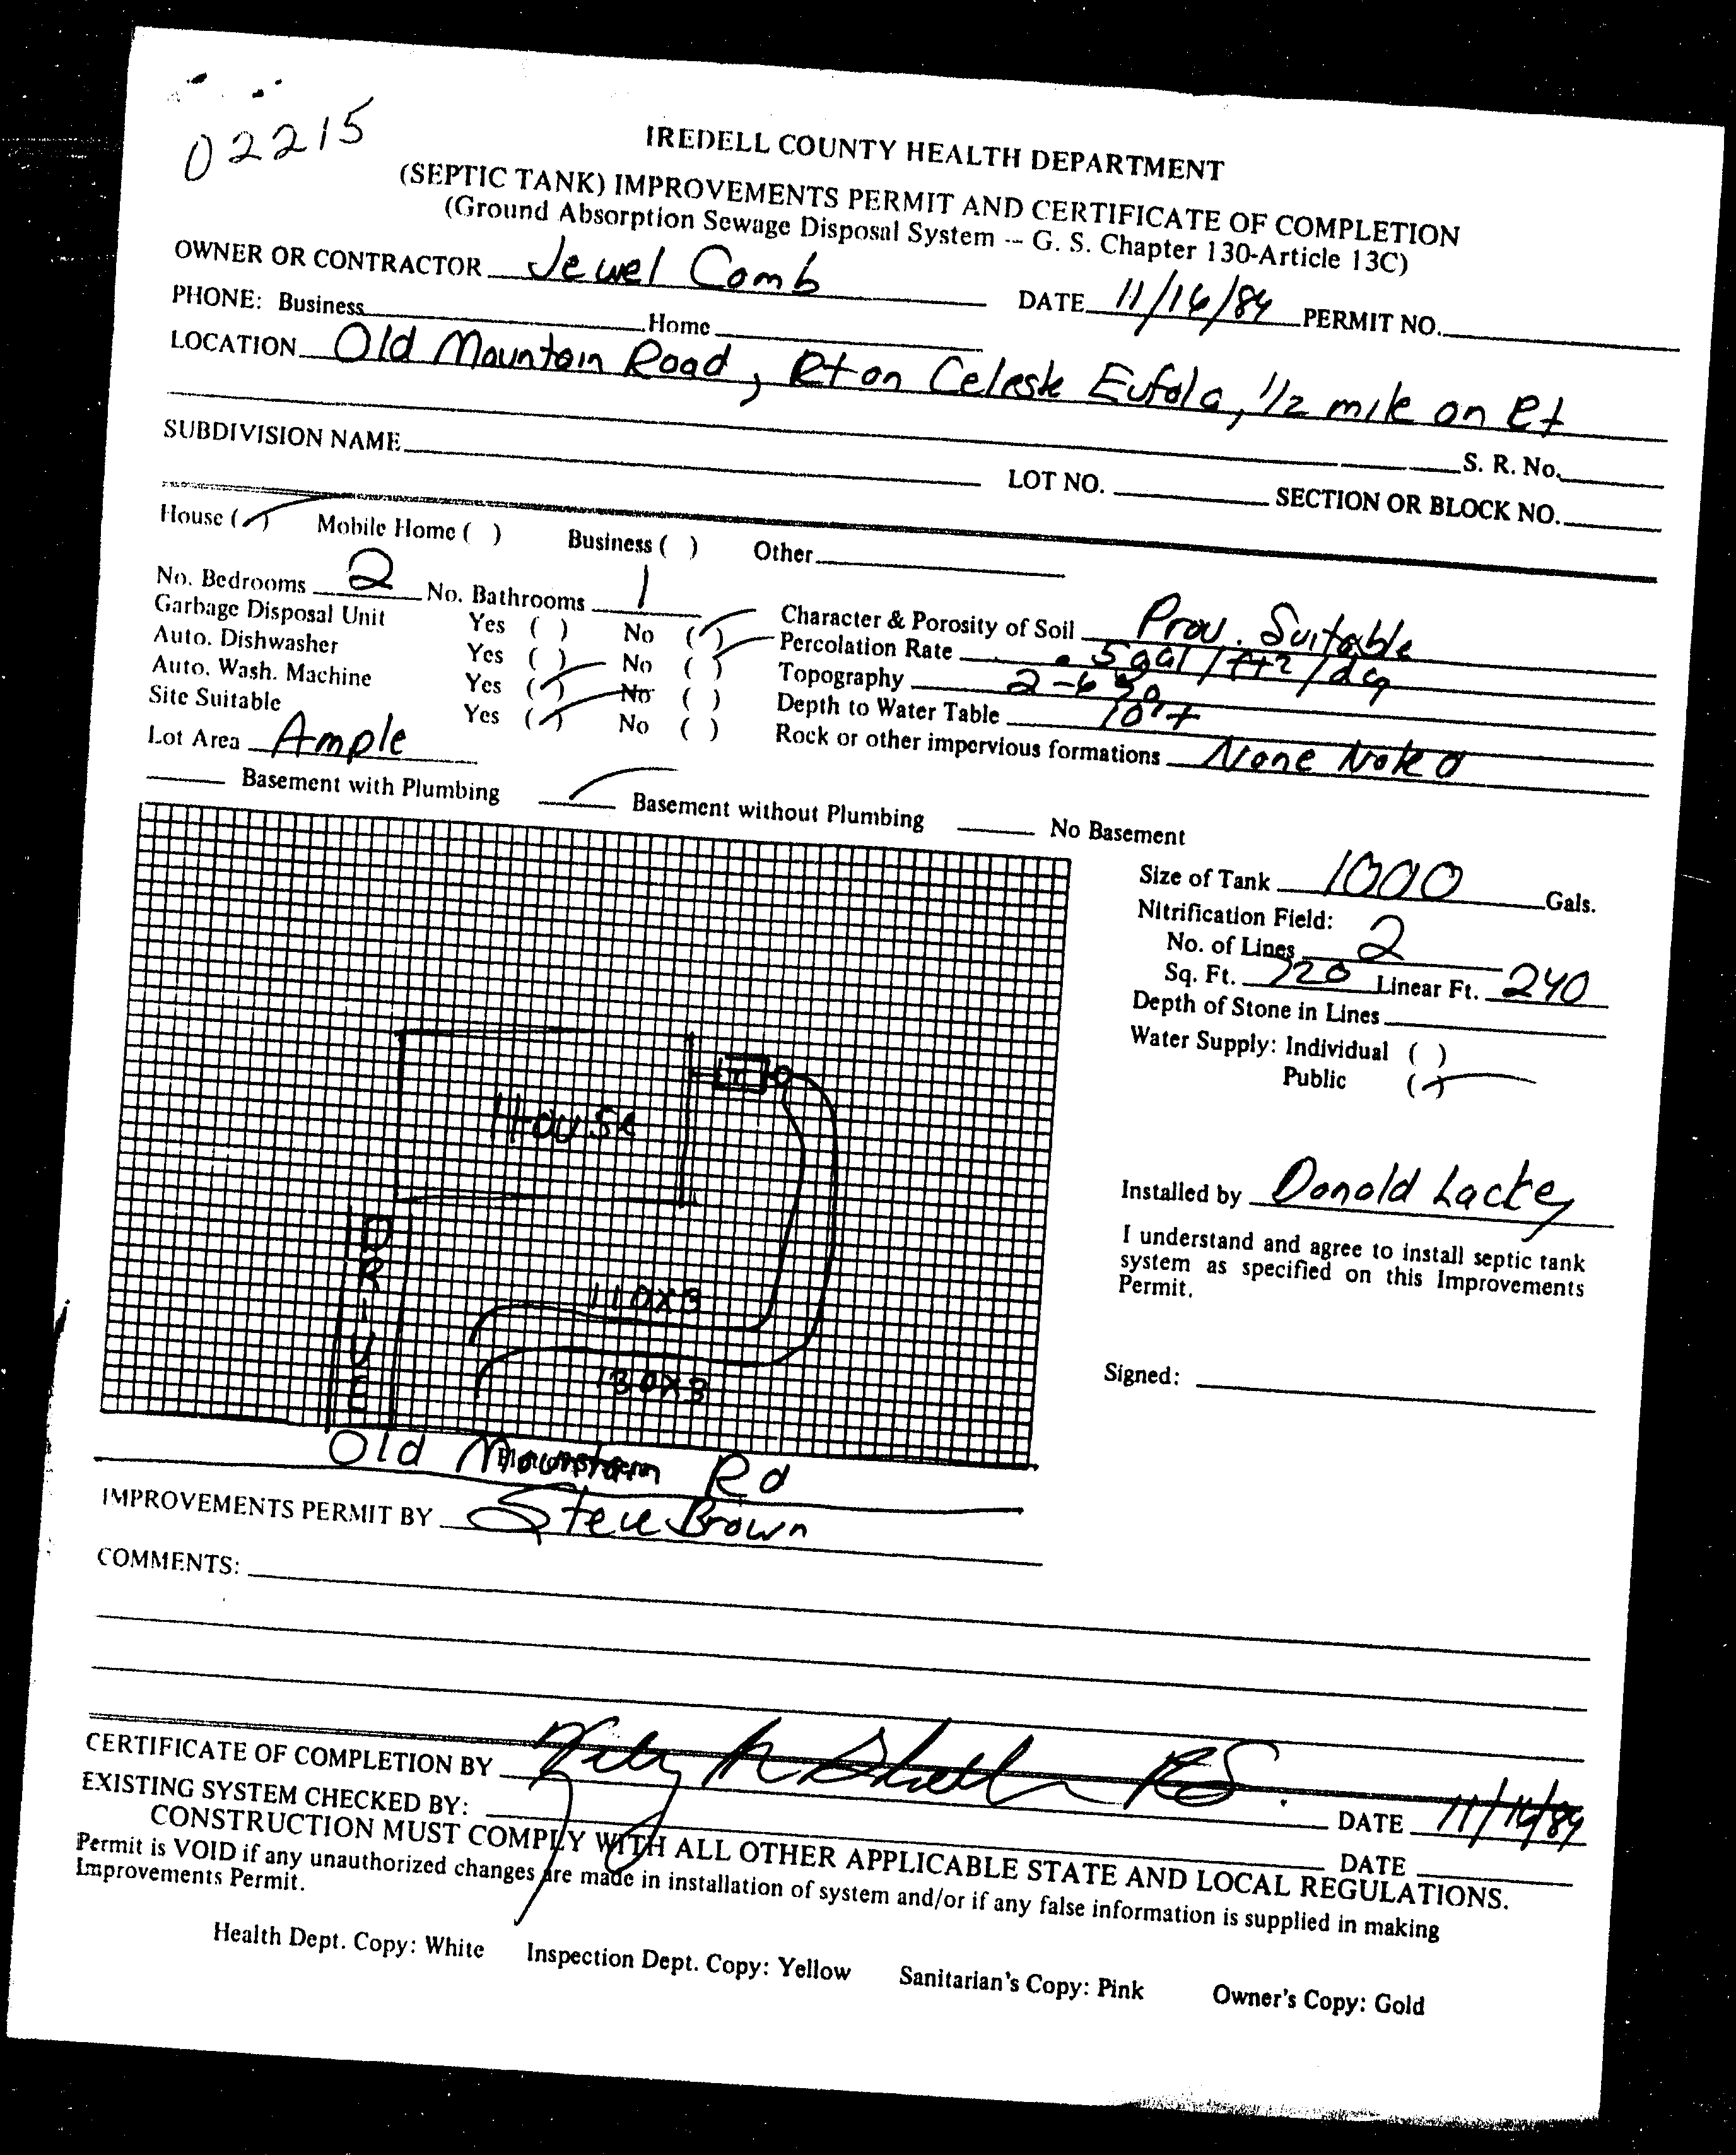 02215
IREDELL COUNTY HEALTH DEPARTMENT
(SEPTIC TANK) IMPROVEMENTS PERMIT AND CERTIFICATE OF COMPLETION
(Ground Absorption Sewage Disposal System -- G. S. Chapter 130-Article 13C)
OWNER OR CONTRACTOR Jewel Comb DATE 11/16/84 PERMIT NO.
PHONE: Business Home
LOCATION Old Mountain Road, Rt on Celeste Eufola, 1/2 mile on Rt
S. R. No.
SUBDIVISION NAME LOT NO. SECTION OR BLOCK NO.
House (✓) Mobile Home ( ) Business ( ) Other
No. Bedrooms 2 No. Bathrooms 1
Garbage Disposal Unit Yes ( ) No (✓) Character & Porosity of Soil Prov. Suitable
Auto. Dishwasher Yes ( ) No (✓) Percolation Rate .5 gal/ft2/day
Auto. Wash. Machine Yes (✓) No ( ) Topography 2-6%
Site Suitable Yes (✓) No ( ) Depth to Water Table 10'+
Lot Area Ample Rock or other impervious formations None Noted
Basement with Plumbing ✓ Basement without Plumbing No Basement
Size of Tank 1000 Gals.
Nitrification Field:
No. of Lines 2
Sq. Ft. 720 Linear Ft. 240
Depth of Stone in Lines
Water Supply: Individual ( )
Public (✓)
House
T
DRIVE
110x3
130x3
Old Mountain Rd
Installed by Donald Lackey
I understand and agree to install septic tank
system as specified on this Improvements
Permit.
Signed:
IMPROVEMENTS PERMIT BY Steve Brown
COMMENTS:
CERTIFICATE OF COMPLETION BY RS. DATE 11/16/84
EXISTING SYSTEM CHECKED BY: DATE
CONSTRUCTION MUST COMPLY WITH ALL OTHER APPLICABLE STATE AND LOCAL REGULATIONS.
Permit is VOID if any unauthorized changes are made in installation of system and/or if any false information is supplied in making
Improvements Permit.
Health Dept. Copy: White Inspection Dept. Copy: Yellow Sanitarian's Copy: Pink Owner's Copy: Gold